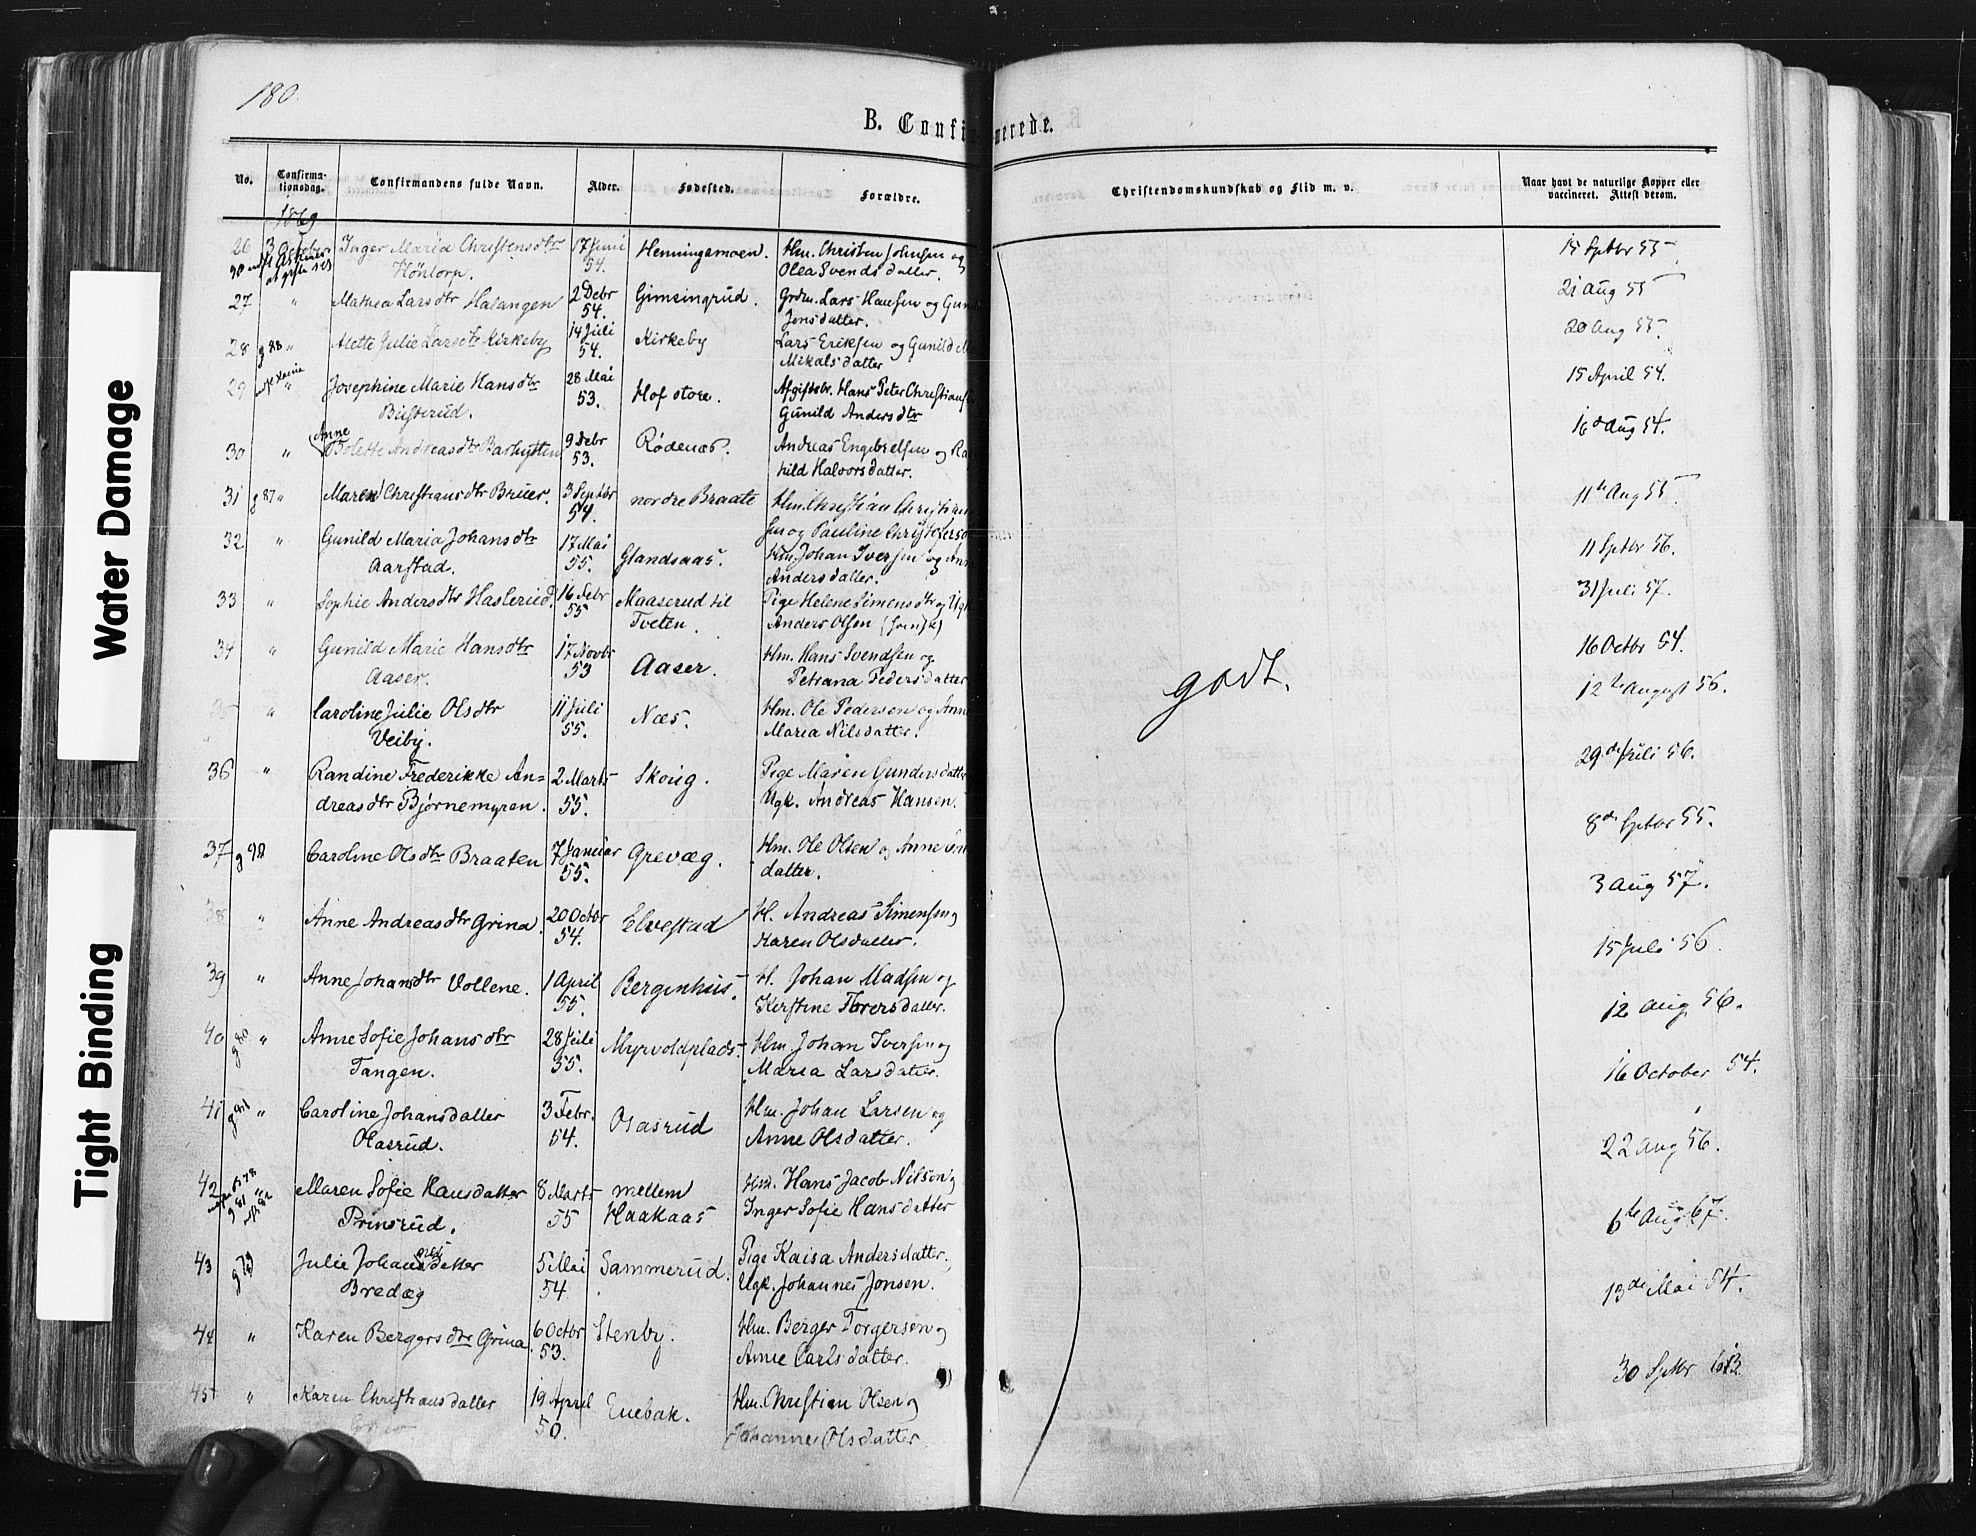 Water Damage
Tight Binding
180.
B. Confirmerede.
No.
Confirma-
tionsdag.
Confirmandens fulde Navn.
Alder.
Fødested.
Forældre.
Christendomskundskab og Flid m. v.
Naar havt de naturlige Kopper eller
vaccineret. Attest derom.
1869
26 3 October Inger Maria Christensdtr 17 Juni Henningsmoen. Hm. Christen Johnsen og 15 Septbr 55
Höntorp. 54. Olea Svendsdatter.
27 " Mathea Larsdtr Halangen 2 Debr Gimsingrud. Grdm. Lars Hansen og 21 Aug 55
54. Jensdatter.
28 g 83 " Alette Julie Larsdtr Kirkeby 14 Juli Kirkeby Lars Eriksen og Gunild 20 Aug 55
54. Mikalsdatter
29 " Josephine Marie Hansdtr 28 Mai Hof store. Afgiftsbr. Hans Peter 15 April 54.
Busterud. 53. Gunild Andersdtr
Anne
30 " Bolette Andreasdtr 9 Debr Rødenæs. Andreas Engebretsen og 16 d Aug 54.
53. hild Halvorsdatter.
31 g 87 " Maren Christiansdtr Bruer. 3 Septbr nordre Braate Hm. Christian Christian 11te Aug 55
54. sen og Pauline
32 " Gunild Maria Johansdtr 17 Mai Glandsaas. Hm. Johan Iversen og 11 Sptbr 56.
Aarstad. 55. Andersdatter.
33 " Sophie Andersdtr Haslerud 16 Febr Maaserud til Pige Helene Simensdtr og Ugk 31 Juli 57.
55 Tveten. Anders Olsen (svensk)
34 " Gunild Marie Hansdtr 17 Novbr Aaser. Hm. Hans Svendsen og 16 Octbr 54.
Aaser. 53 Petrana Pedersdatter
godt.
35 " Caroline Julie Olsdtr 11 Juli Næs. Hm. Ole Pedersen og Anne 12te August 56.
Veiby. 55. Maria Nilsdatter.
36 " Randine Frederikke An= 2 Marts Skoug. Pige Maren Gundersdatter 29de Juli 56.
dreasdtr Bjørnemyren. 55. Ugk. Andreas Hansen.
37 g 90 Caroline Olsdtr Braaten 7 Januar Grevæg. Hm. Ole Olsen og Anne 8de Sptbr 55.
55. datter.
38 " Anne Andreasdtr Grina. 20 Octbr Elvestad H. Andreas Simensen og 3 Aug 57.
54. Karen Olsdatter.
39 " Anne Johansdtr Vollene. 1 April Bergenhus. H. Johan Madsen og 15 Juli 56.
55. Kerstine Torersdatter.
40 g 80 " Anne Sofie Johansdtr 28 Juli Myrvoldplads. Hm Johan Iversen og 12 Aug 56.
Tangen. 55. Maria Larsdatter.
41 g 81 " Caroline Johansdatter 3 Febr. Olasrud Hm. Johan Larsen og 16 October 54.
Olasrud. 54. Anne Olsdatter.
42 Maren Sofie Hansdatter 8 Marts mellem Hm. Hans Jacob Nilsen og 22 Aug 56.
g 81 Prinsrud. 55 Haakaas Inger Sofie Hansdatter
43 g 79 Julie Johannesdatter 5 Mai Sammerud. Pige Kaisa Andersdatter. 6te Aug 67.
Bredæg 54 Ugk. Johannes Jonsen.
44 " Karen Bergersdtr Grina. 6 Octbr Stenby. Hm. Berger Torgersen og 13de Mai 54.
53. Anne Carlsdatter.
45 " Karen Christiansdatter 19 April Enebak. Hm. Christian Olsen og 30 Sptbr
50. Johanne Olsdatter